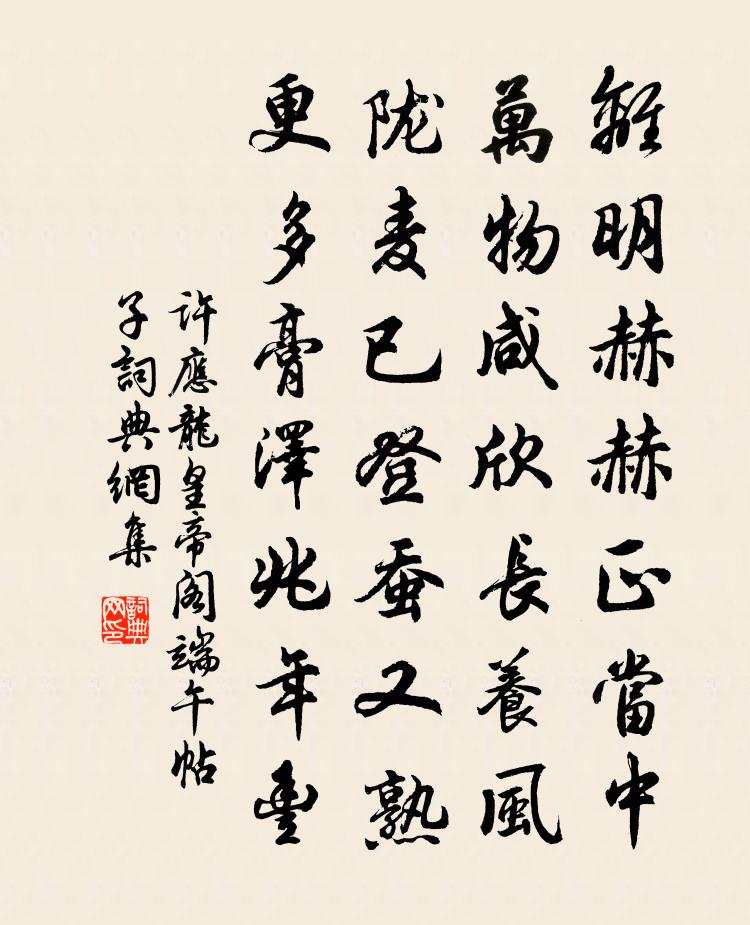 離明赫赫正當中
萬物咸欣長養風
陇麦已登蚕又熟
更多膏澤兆年豊
許應龍皇帝閣端午帖
子詞典網集
詞典
网印